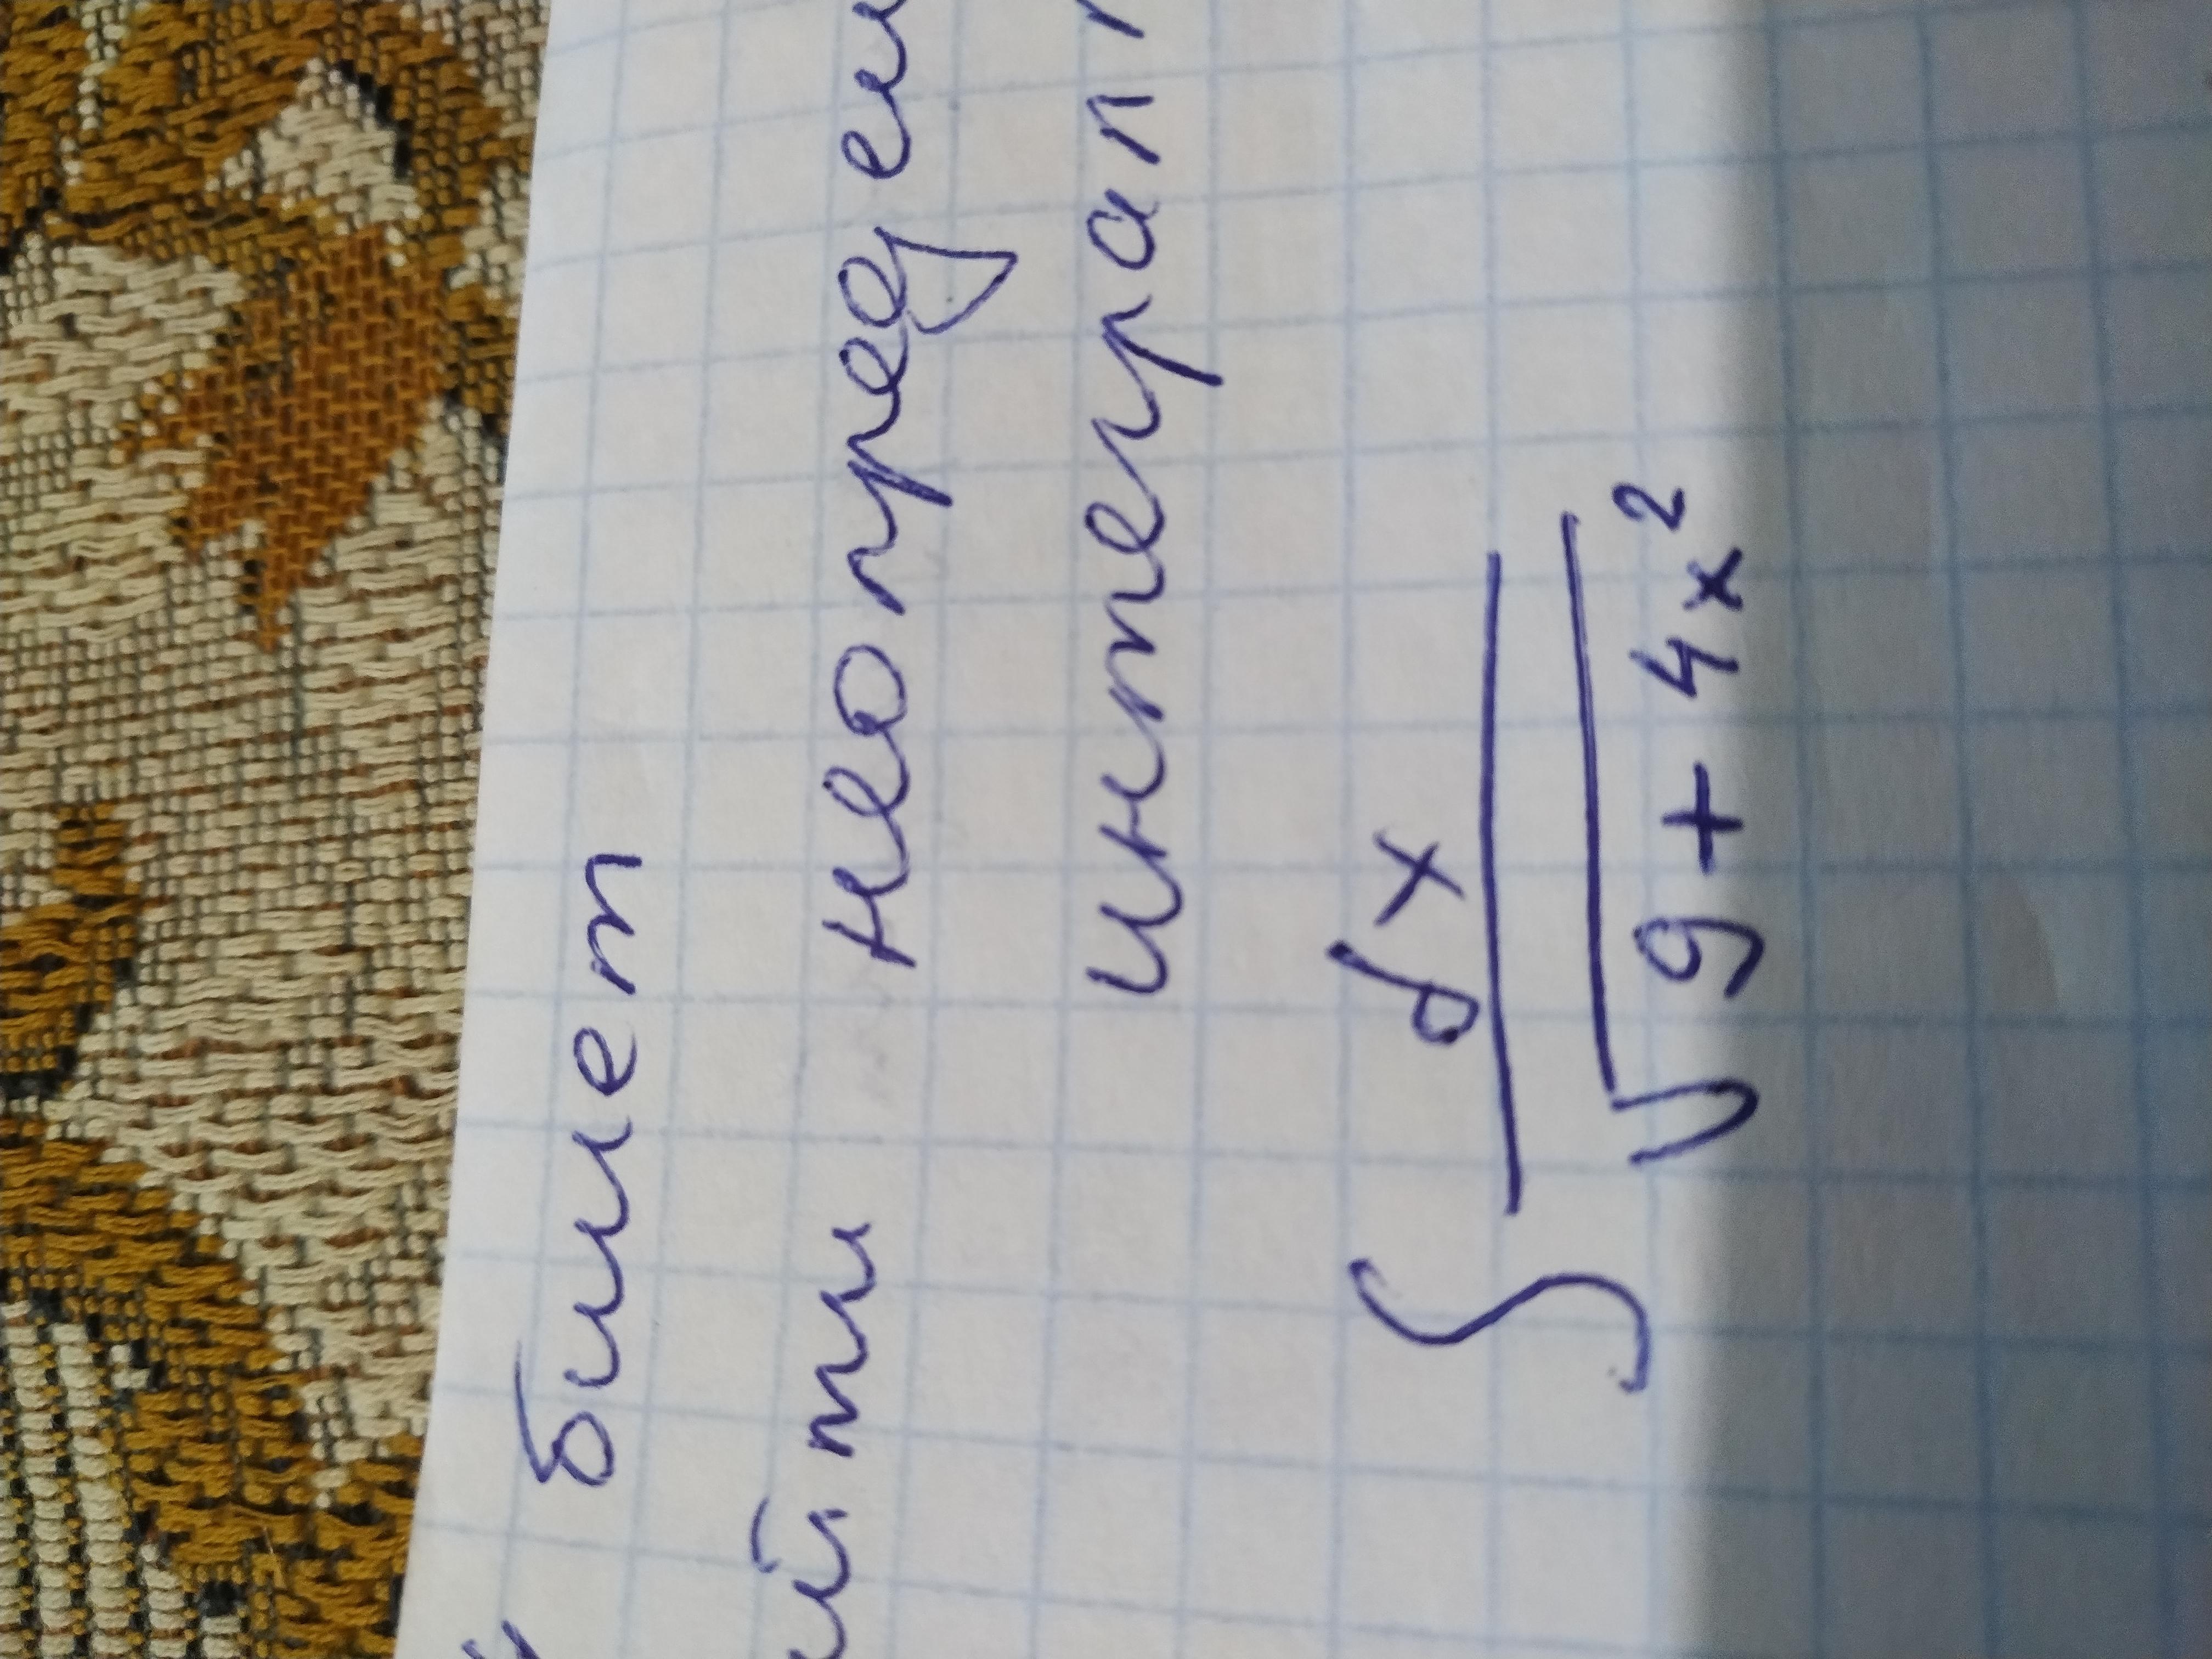 билет
йти неопредели
интеграл
∫ dx / √9 + 4x²